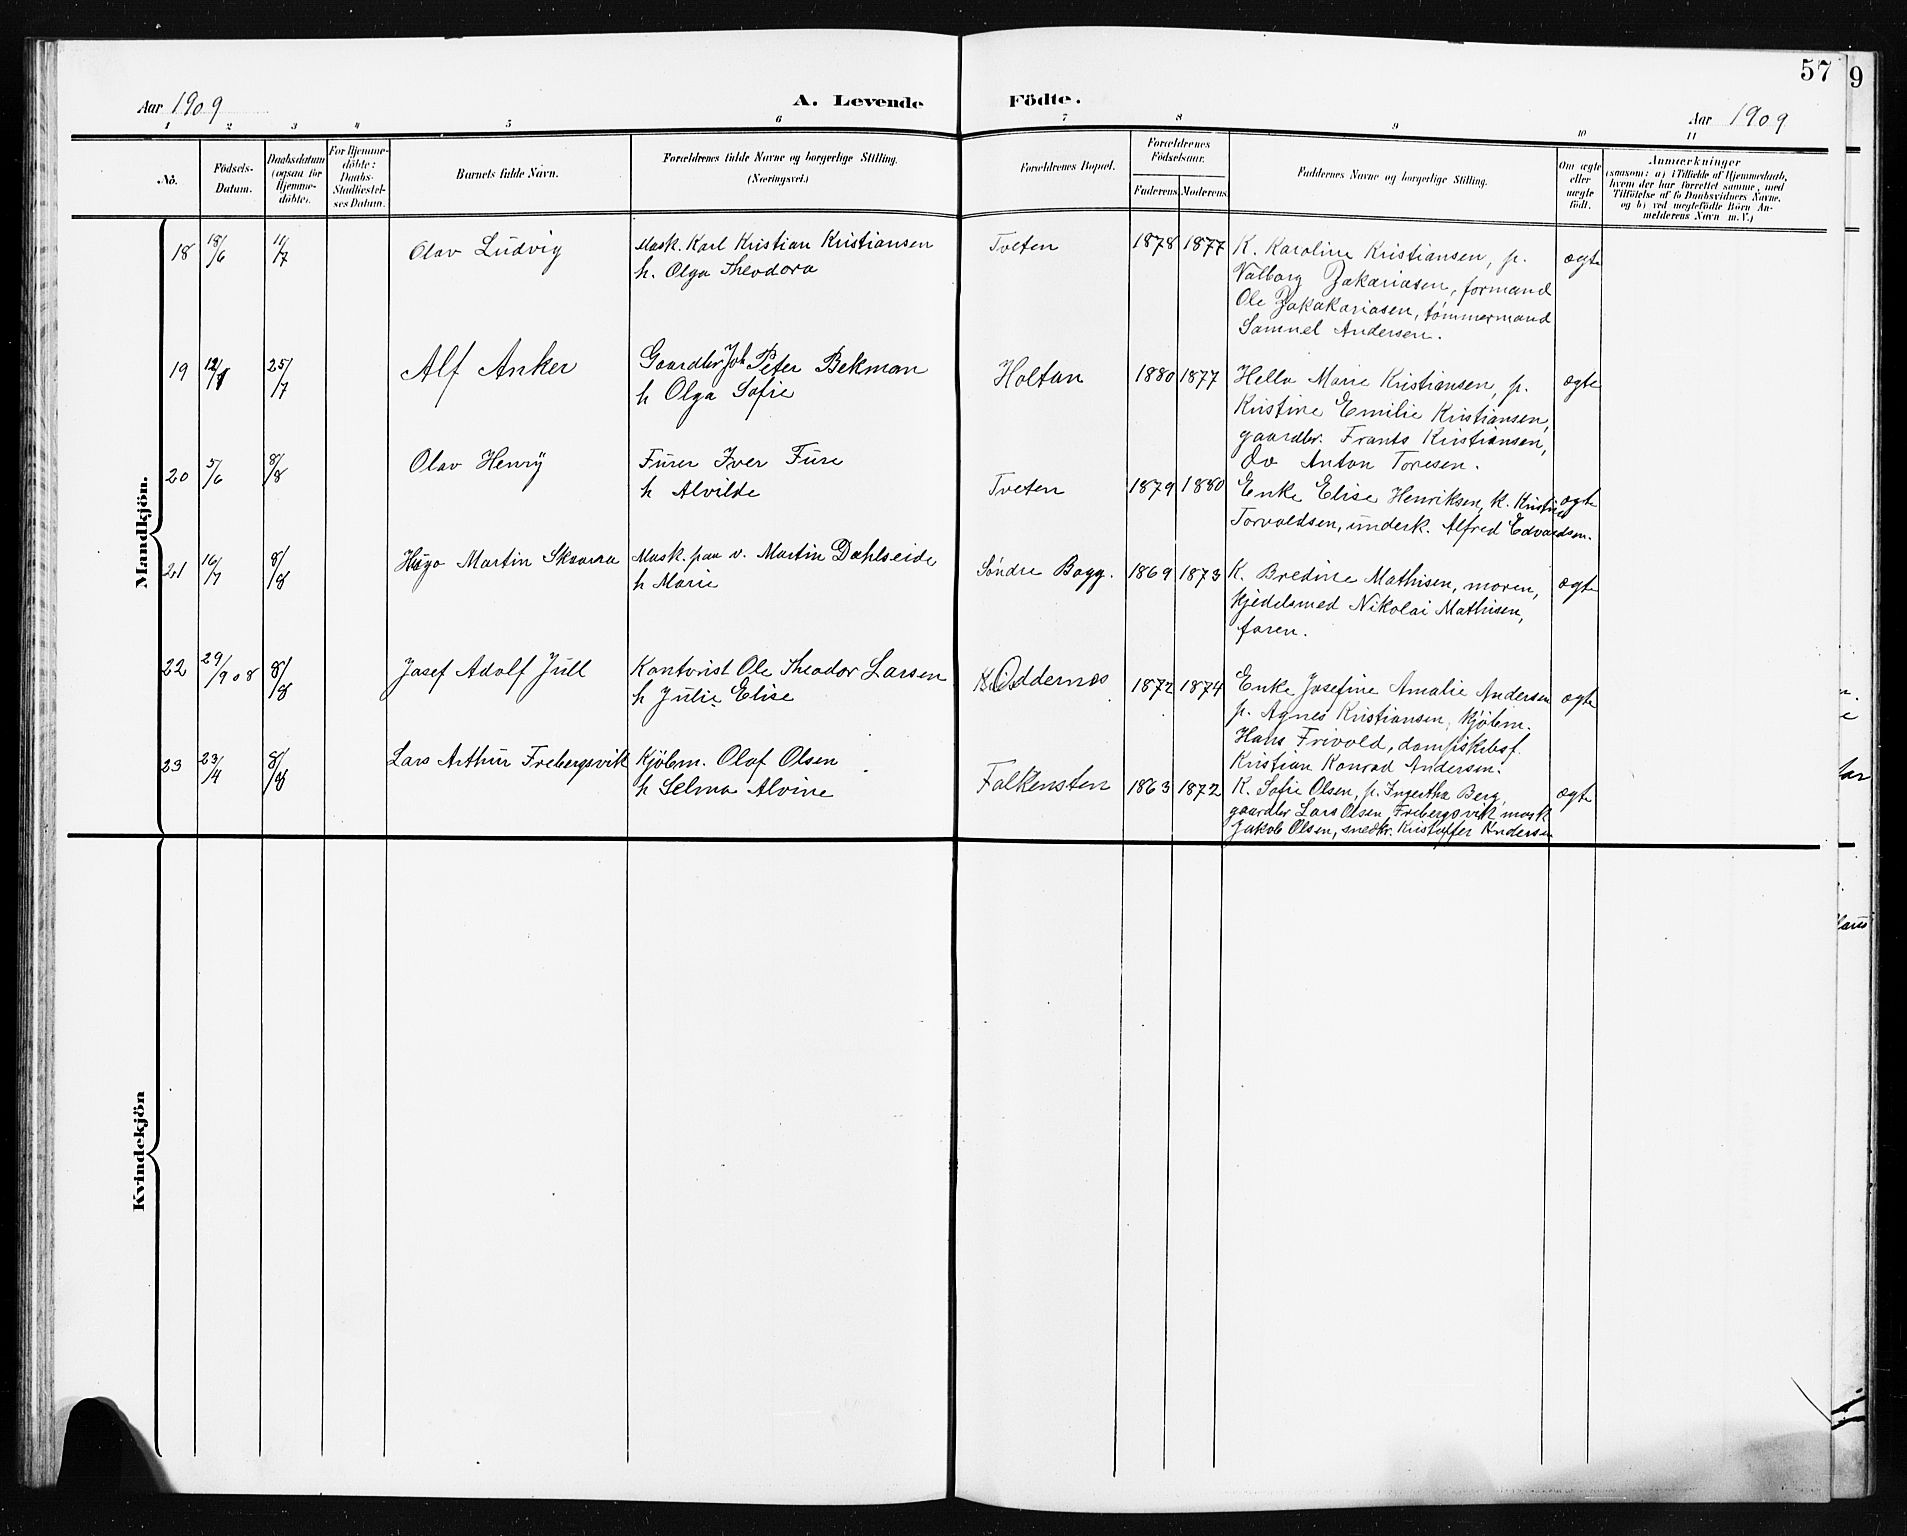 57
9
Aar 1909
A. Levende Födte.
Aar 1909
1 2 3 4 5 6 7 8 9 10 11
No.
Födsels-
Datum.
Daabsdatum
(ogsaa for
Hjemme-
döbte).
For Hjemme-
döbte:
Daabs-
Stadfæstel-
ses Datum.
Barnets fulde Navn.
Forældrenes fulde Navne og borgerlige Stilling.
(Næringsvei.)
Forældrenes Bopæl.
Forældrenes
Födselsaar.
Faderens Moderens
Faddernes Navne og borgerlige Stilling.
Om ægte
eller
uægte
födt.
Anmærkninger
(saasom: a) i Tilfælde af Hjemmedaab,
hvem der har forrettet samme, med
Tilföielse af to Daabsvidners Navne,
og b) ved uegtefödte Börn An-
melderens Navn m. V.)
Mandkjön.
18 18/6 11/7 Olav Ludvig Mask. Karl Kristian Kristiansen Tveten 1878 1877 K. Karoline Kristiansen, p. ægte
h. Olga Theodora Valborg Zakariasen, formand
Ole Zakakariasen, tømmermand
Samuel Andersen.
19 12/1 25/7 Alf Anker Gaardbr Joh Peter Bekman Holtan 1880 1877 Hella Marie Kristiansen, p. ægte
h Olga Sofie Kristine Emilie Kristiansen,
gaardbr. Frants Kristiansen,
do Anton Toresen.
20 5/6 8/8 Olav Henry Furer Iver Fure Tveten 1879 1880 Enke Elise Henriksen, K. Kristine ægte
h Alvilde Torvaldsen, underk. Alfred Edvardsen.
21 16/7 8/8 Hugo Martin Skaaraa Mask. paa v. Martin Dahlseide Søndre Bagg. 1869 1873 K. Bredine Mathisen, moren, ægte
h Marie Kjedelsmed Nikolai Mathisen,
faren.
22 29/9 08 8/8 Josef Adolf Jull Kontorist Ole Theodor Larsen Oddernes 1872 1874 Enke Josefine Amalie Andersen ægte
h Julie Elise p. Agnes Kristiansen, Kjöbm.
Hans Frivold, dampskibsf.
Kristian Konrad Andersen.
23 23/4 8/8 Lars Arthur Frebergsvik Kjöbm. Olaf Olsen Falkensten 1863 1872 K. Sofie Olsen, p. Ingertha Berg, ægte
h Selma Alvine gaardbr Lars Olsen Frebergsvik, mask
Jakob Olsen, snedkr. Kristoffer Andersen
Kvindekjön